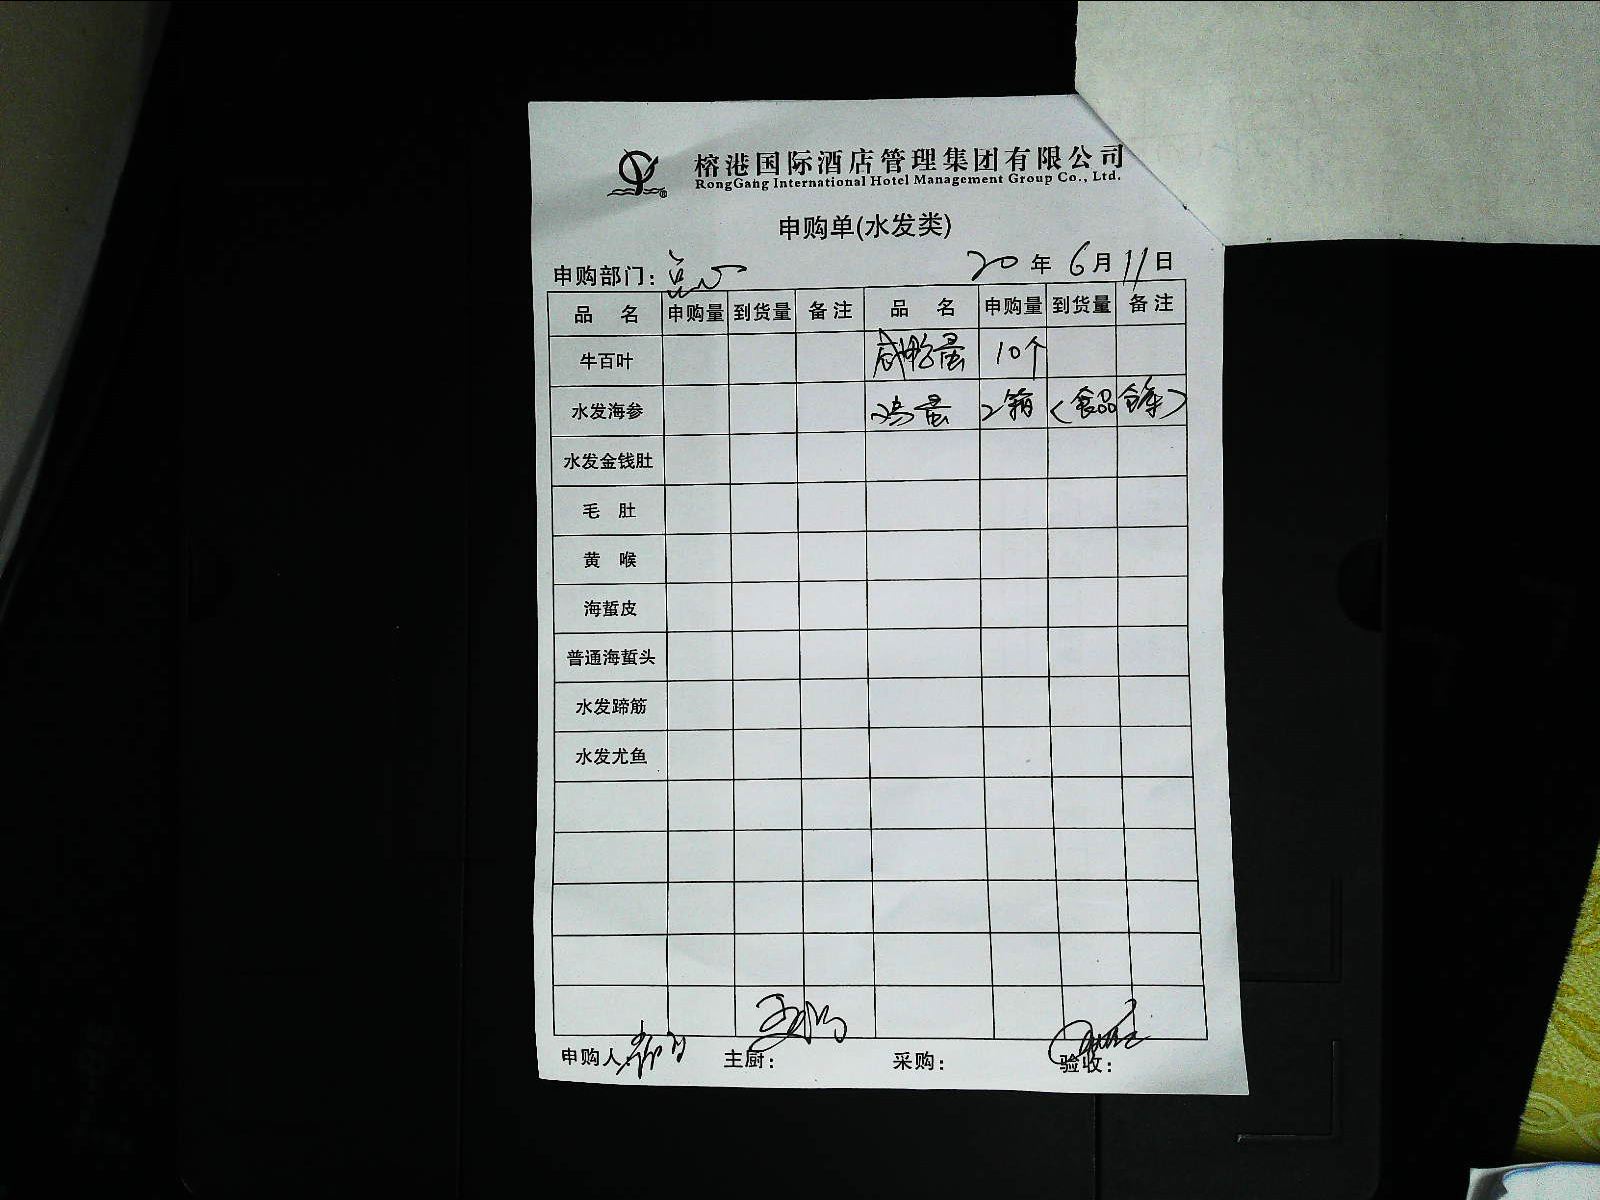 榕港国际酒店管理集团有限公司
RongGang International Hotel Management Group Co., Ltd.
申购单(水发类)
申购部门: 点心 20 年 6 月 11 日
品 名 申购量 到货量 备注 品 名 申购量 到货量 备注
牛百叶 咸鸭蛋 10个
水发海参 鸡蛋 2箱 (食品仓库)
水发金钱肚
毛 肚
黄 喉
海蜇皮
普通海蜇头
水发蹄筋
水发尤鱼
申购人: 主厨: 采购: 验收: